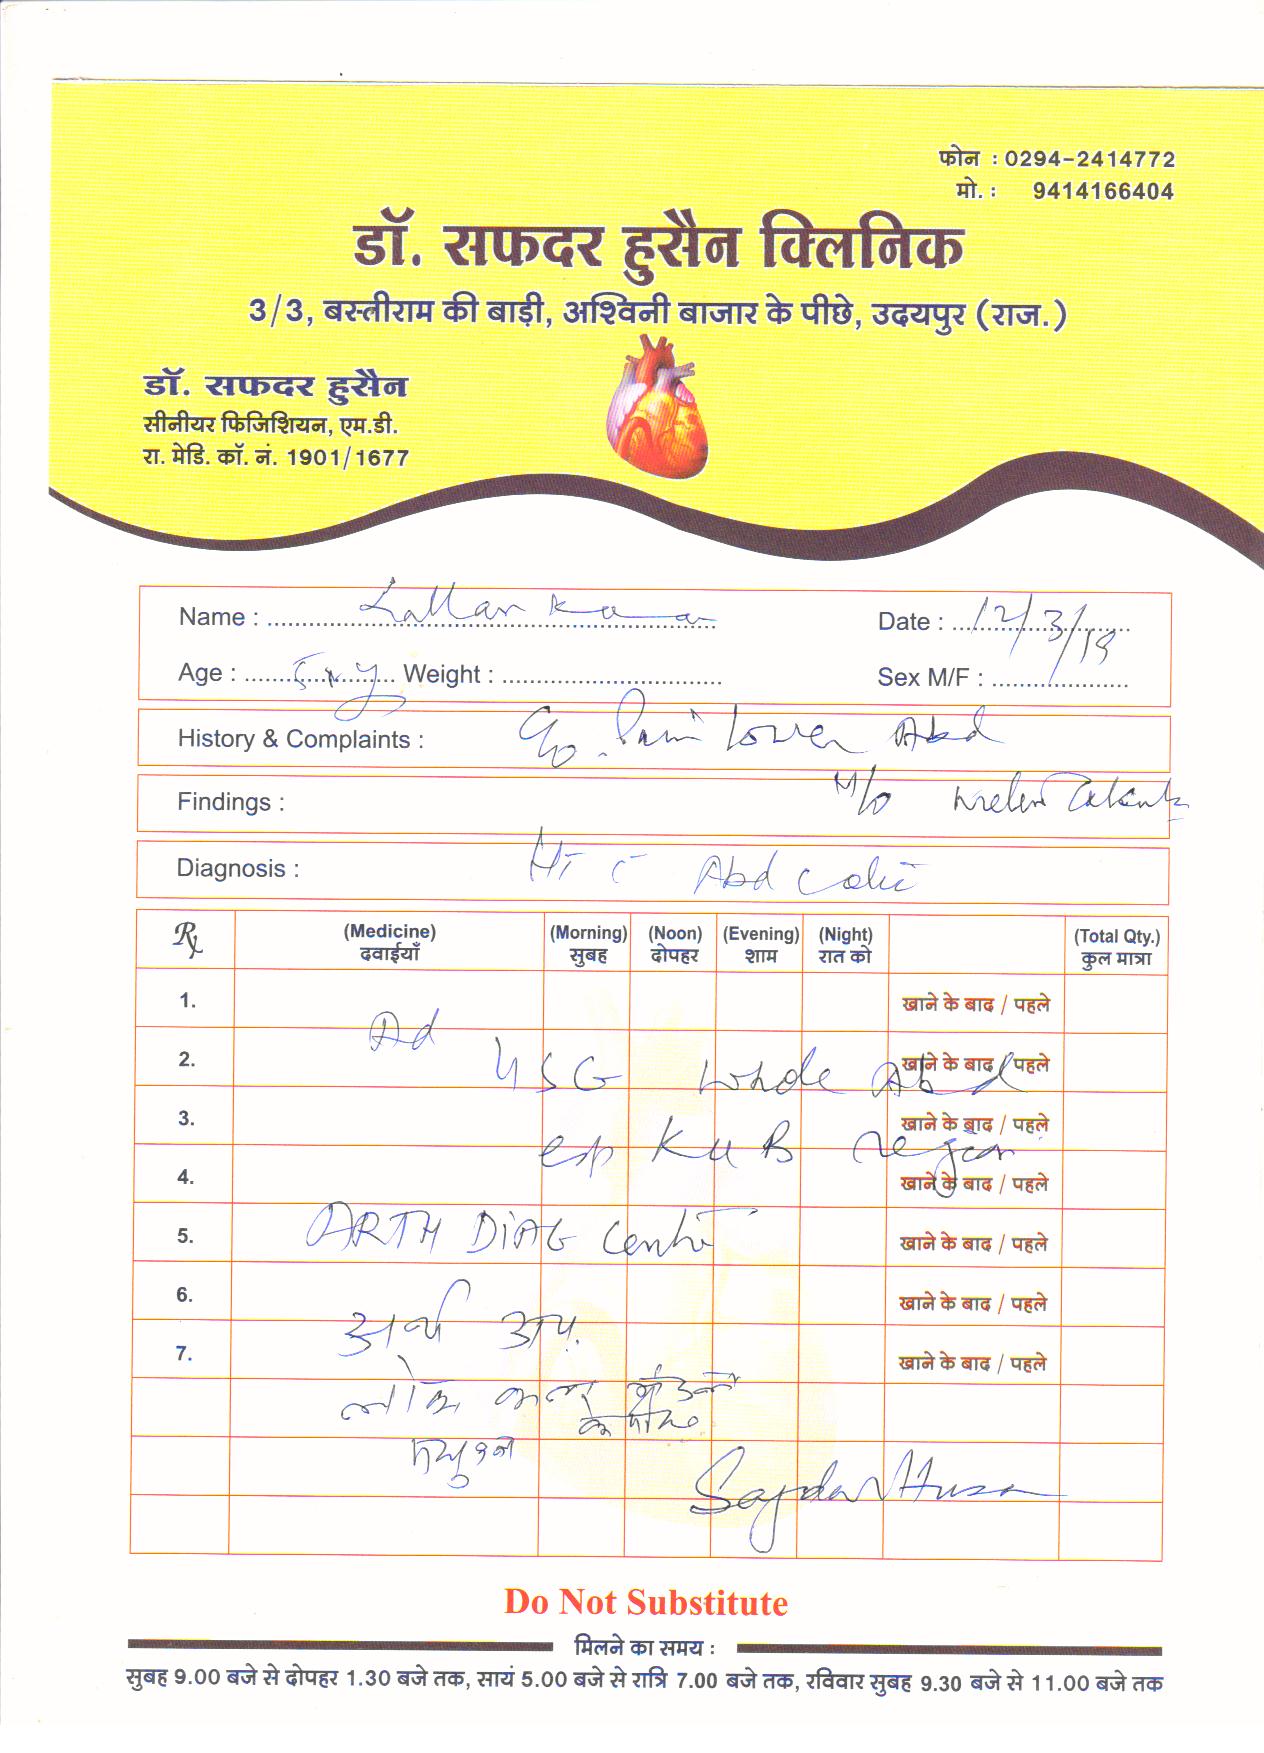 फोन : 0294-2414772
मो. : 9414166404
डॉ. सफदर हुसैन क्लिनिक
3/3, बस्तीराम की बाड़ी, अश्विनी बाजार के पीछे, उदयपुर (राज.)
डॉ. सफदर हुसैन
सीनीयर फिजिशियन, एम.डी.
रा. मेडि. कॉ. नं. 1901/1677
Name : Lallan Date : 12/3/19
Age : Weight : Sex M/F :
History & Complaints : C/o. Pain Lower Abd
Findings :
Diagnosis : HT c Abd Colic
Rx (Medicine) (Morning) (Noon) (Evening) (Night) (Total Qty.)
दवाईयाँ सुबह दोपहर शाम रात को कुल मात्रा
1. खाने के बाद / पहले
Ad
2. USG Whole Abd खाने के बाद / पहले
3. खाने के बाद / पहले
esp KUB region
4. खाने के बाद / पहले
5. ARTH DIAG Centre खाने के बाद / पहले
6. खाने के बाद / पहले
अर्थ
7. खाने के बाद / पहले
लोक कला
के पीछे
Do Not Substitute
मिलने का समय :
सुबह 9.00 बजे से दोपहर 1.30 बजे तक, सायं 5.00 बजे से रात्रि 7.00 बजे तक, रविवार सुबह 9.30 बजे से 11.00 बजे तक